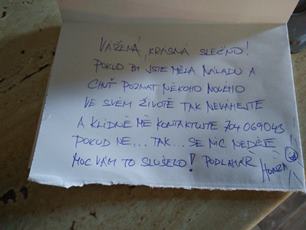 VÁŽENÁ, KRÁSNÁ SLEČNO!
POKUD BY JSTE MĚLA NÁLADU A
CHUŤ POZNAT NĚKOHO NOVÉHO
VE SVÉM ŽIVOTĚ TAK NEVÁHEJTE
A KLIDNĚ MĚ KONTAKTUJTE 704 069045
POKUD NE... TAK... SE NIC NEDĚJE
MOC VÁM TO SLUŠELO! PODLAHÁŘ HONZA